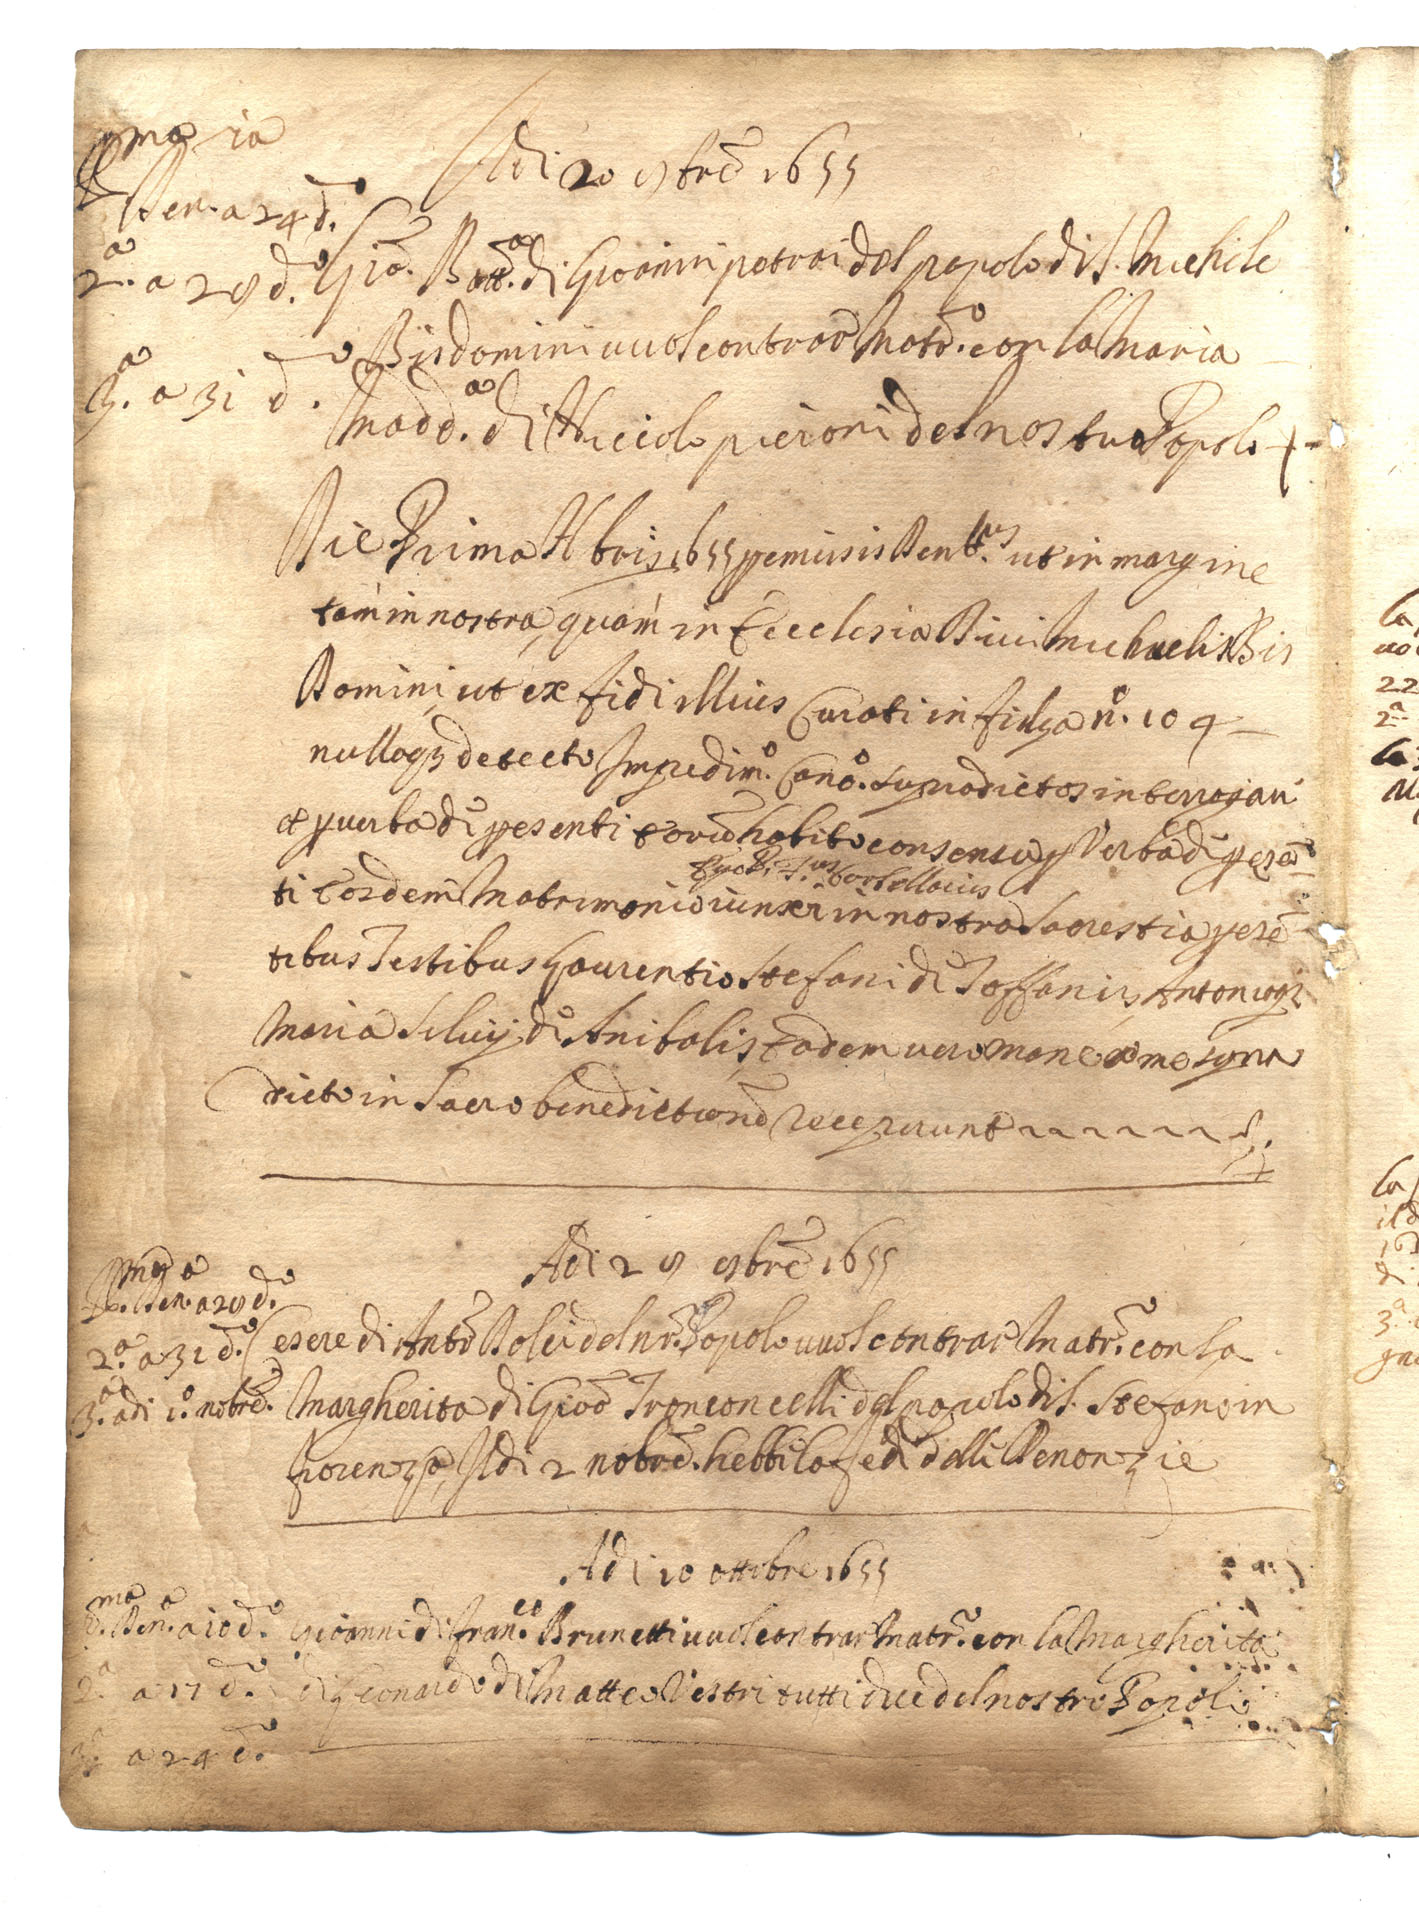 Adi 20 8bre 1655
p.ma
Den. a 24 d.o
2.a a 28 d.o
3.a a 31 d.o
Gio. Batt.a di Giovanni petrai del popolo di S. Michele
Bisdomini vuol contrar Matr.o con la Maria
Madd.a di Niccolo pieroni del nostro Popolo
Die Prima 9bris 1655 premisis Den.tis ut in margine
tam in nostra, quam in Ecclesia Divi Michaelis Bis
Domini, ut ex fidi illius Curati in filza n.o 104
nulloq3 detecto Impedim.o Can.o supradictos interrogavi
et p verba di presenti eoru habito consensu p verba di prese
ti eosdem Matrimonio iunxi in nostra Sacrestia prese
tibus Testibus Laurentio Stefani di Toffanis, Antonioq3
Maria Silvij di Anibalis, Eadem vero mane a me supra
dicto in Sacro benedictione receperunt
Adi 28 8bre 1655
p.ma Den. a 28 d.o
2.a a 31 d.o
3.a adi 1.o nobre.
Cesere di Ant.o Dolci del nr.o Popolo vuol contrar Matr.o con la
Margherita di Gio Tronconcelli del popolo di S. Stefano in
fiorenza, Adi 2 nobre. hebbi la fede delle Denonzie
Adi 10 ottobre 1655
p.ma Den.a a 10 d.o
2.a a 17 d.o
3.a a 24 d.o
Giovanni di Fran.co Brunetti vuol contrar Matr.o con la Margherita
di Leonardo di Matteo Vestri tutti due del nostro Popolo